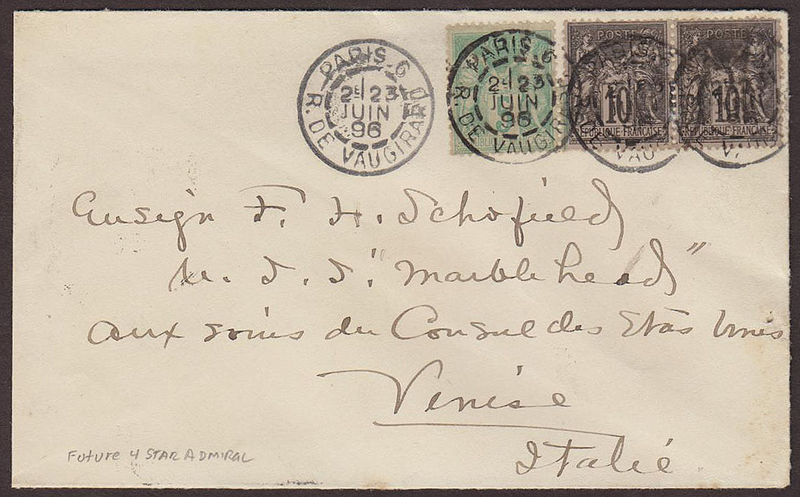 PARIS 6
2E 23
JUIN
96
R. DE VAUGIRARD
PARIS 6
2E 23
JUIN
96
R. DE VAUGIRARD
POSTE
10
RÉPUBLIQUE FRANÇAISE
POSTE
10
RÉPUBLIQUE FRANÇAISE
Ensign F. H. Schofield
U. S. S. "Marblehead"
aux soins du Consul des Etats Unis
Venise
Italie.
Future 4 STAR ADMIRAL